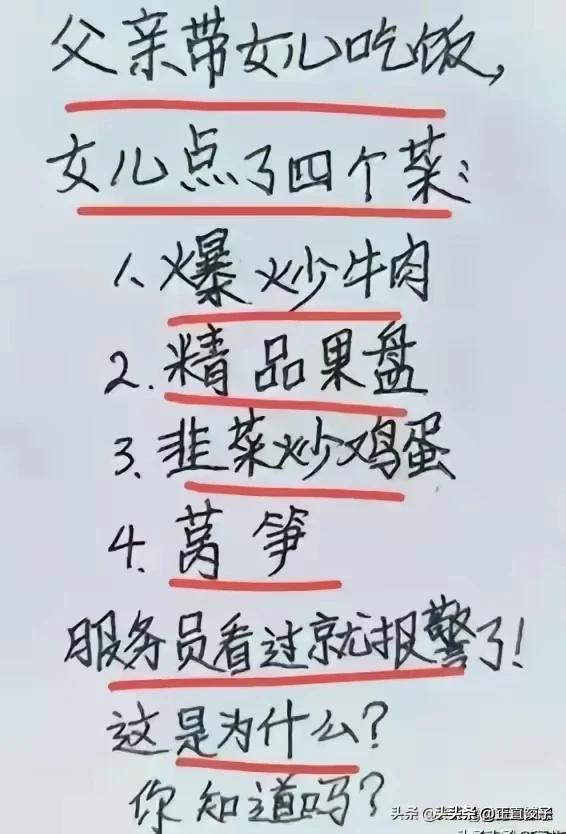 父亲带女儿吃饭,
女儿点了四个菜:
1、爆炒牛肉
2.精品果盘
3.韭菜炒鸡蛋
4.莴笋
服务员看过就报警了!
这是为什么?
你知道吗?
头条 @头条 @正直饺子